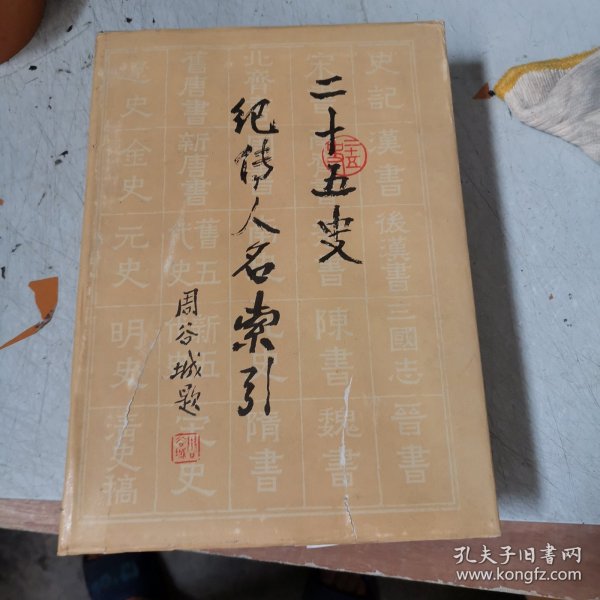 二十五史
紀傳人名索引
周谷城題
史記
漢書
後漢書
三國志
晉書
陳書
魏書
北齊
隋書
舊唐書
新唐書
舊五
新五
遼史
金史
元史
明史
清史稿
孔夫子旧书网
www.kongfz.com